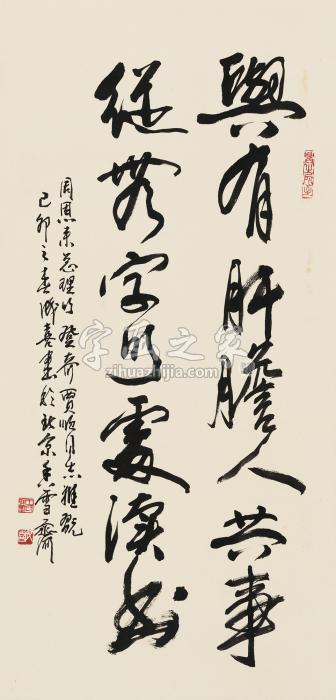 與有肝膽人共事
從無字句處讀書
周恩来总理句 登奇贾顺同志雅玩
己卯之春 喜书於北京香雪斋
字画之家
zihuazhijia.com